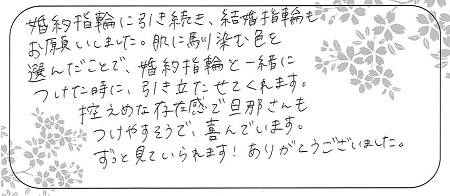 婚約指輪に引き続き、結婚指輪も
お願いしました。肌に馴染む色を
選んだことで、婚約指輪と一緒に
つけた時に、引き立たせてくれます。
控えめな存在感で旦那さんも
つけやすそうで、喜んでいます。
ずっと見ていられます！ありがとうございました。